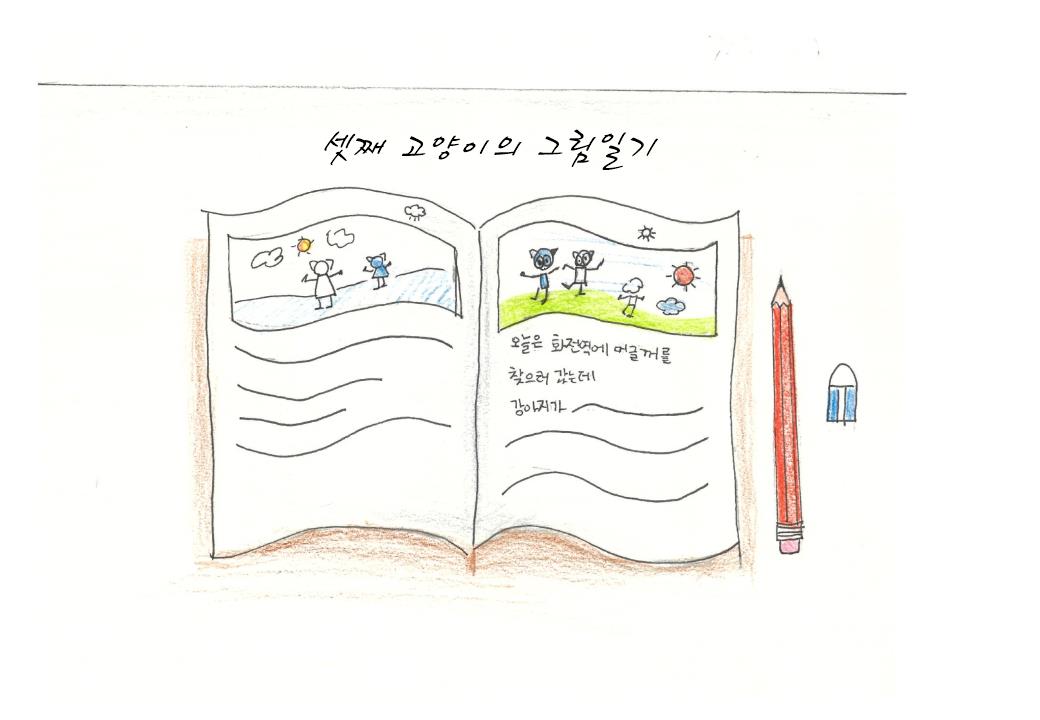 셋째 고양이의 그림일기
오늘은 화전역에 머글꺼를
찾으러 갔는데
강아지가